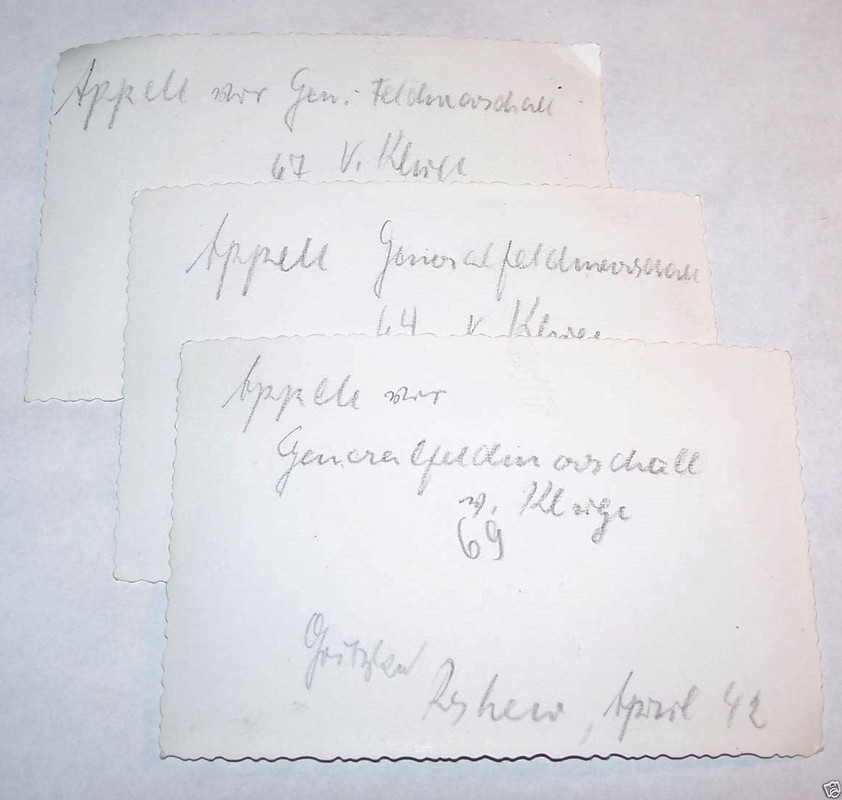 Appell vor Gen. Feldmarschall
67 v. Kluge
Appell Generalfeldmarschall
64 v. Kluge
Appell vor
Generalfeldmarschall
v. Kluge
69
Rshew, April 42